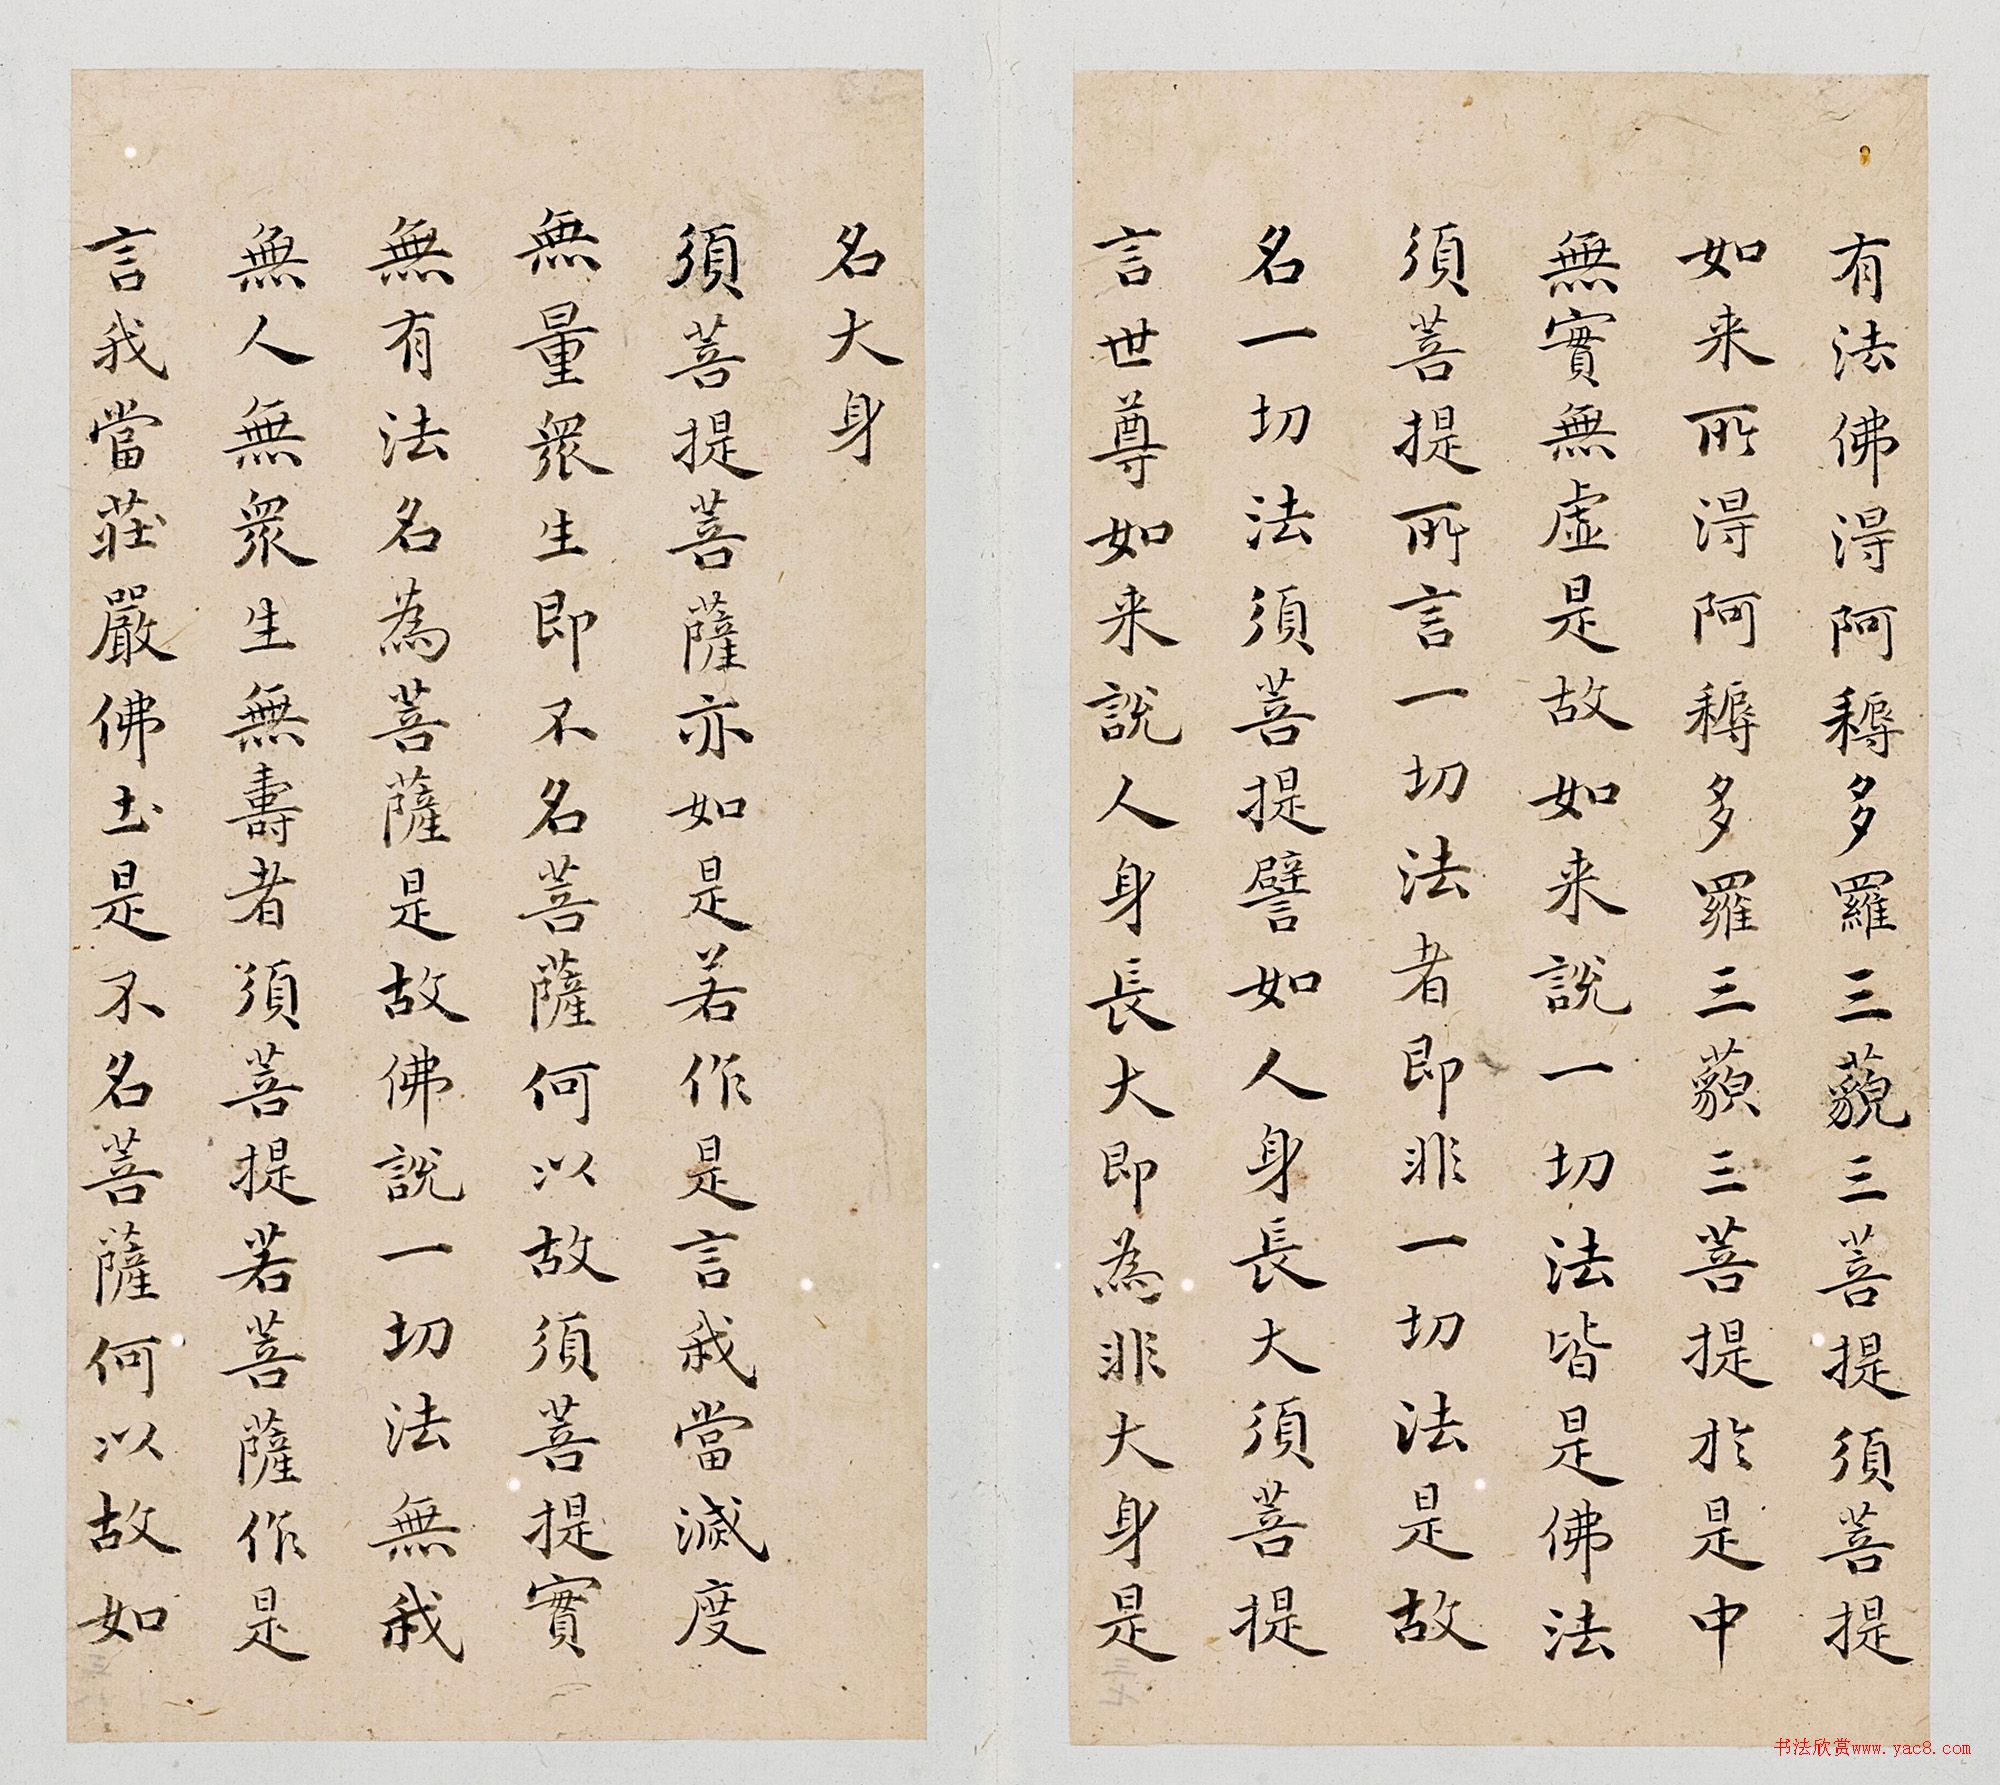 有法佛得阿耨多羅三藐三菩提須菩提
如来所得阿耨多羅三藐三菩提於是中
無實無虛是故如来說一切法皆是佛法
須菩提所言一切法者即非一切法是故
名一切法須菩提譬如人身長大須菩提
言世尊如来說人身長大即為非大身是
名大身
須菩提菩薩亦如是若作是言我當滅度
無量眾生即不名菩薩何以故須菩提實
無有法名為菩薩是故佛說一切法無我
無人無眾生無壽者須菩提若菩薩作是
言我當莊嚴佛土是不名菩薩何以故如
书法欣赏www.yac8.com